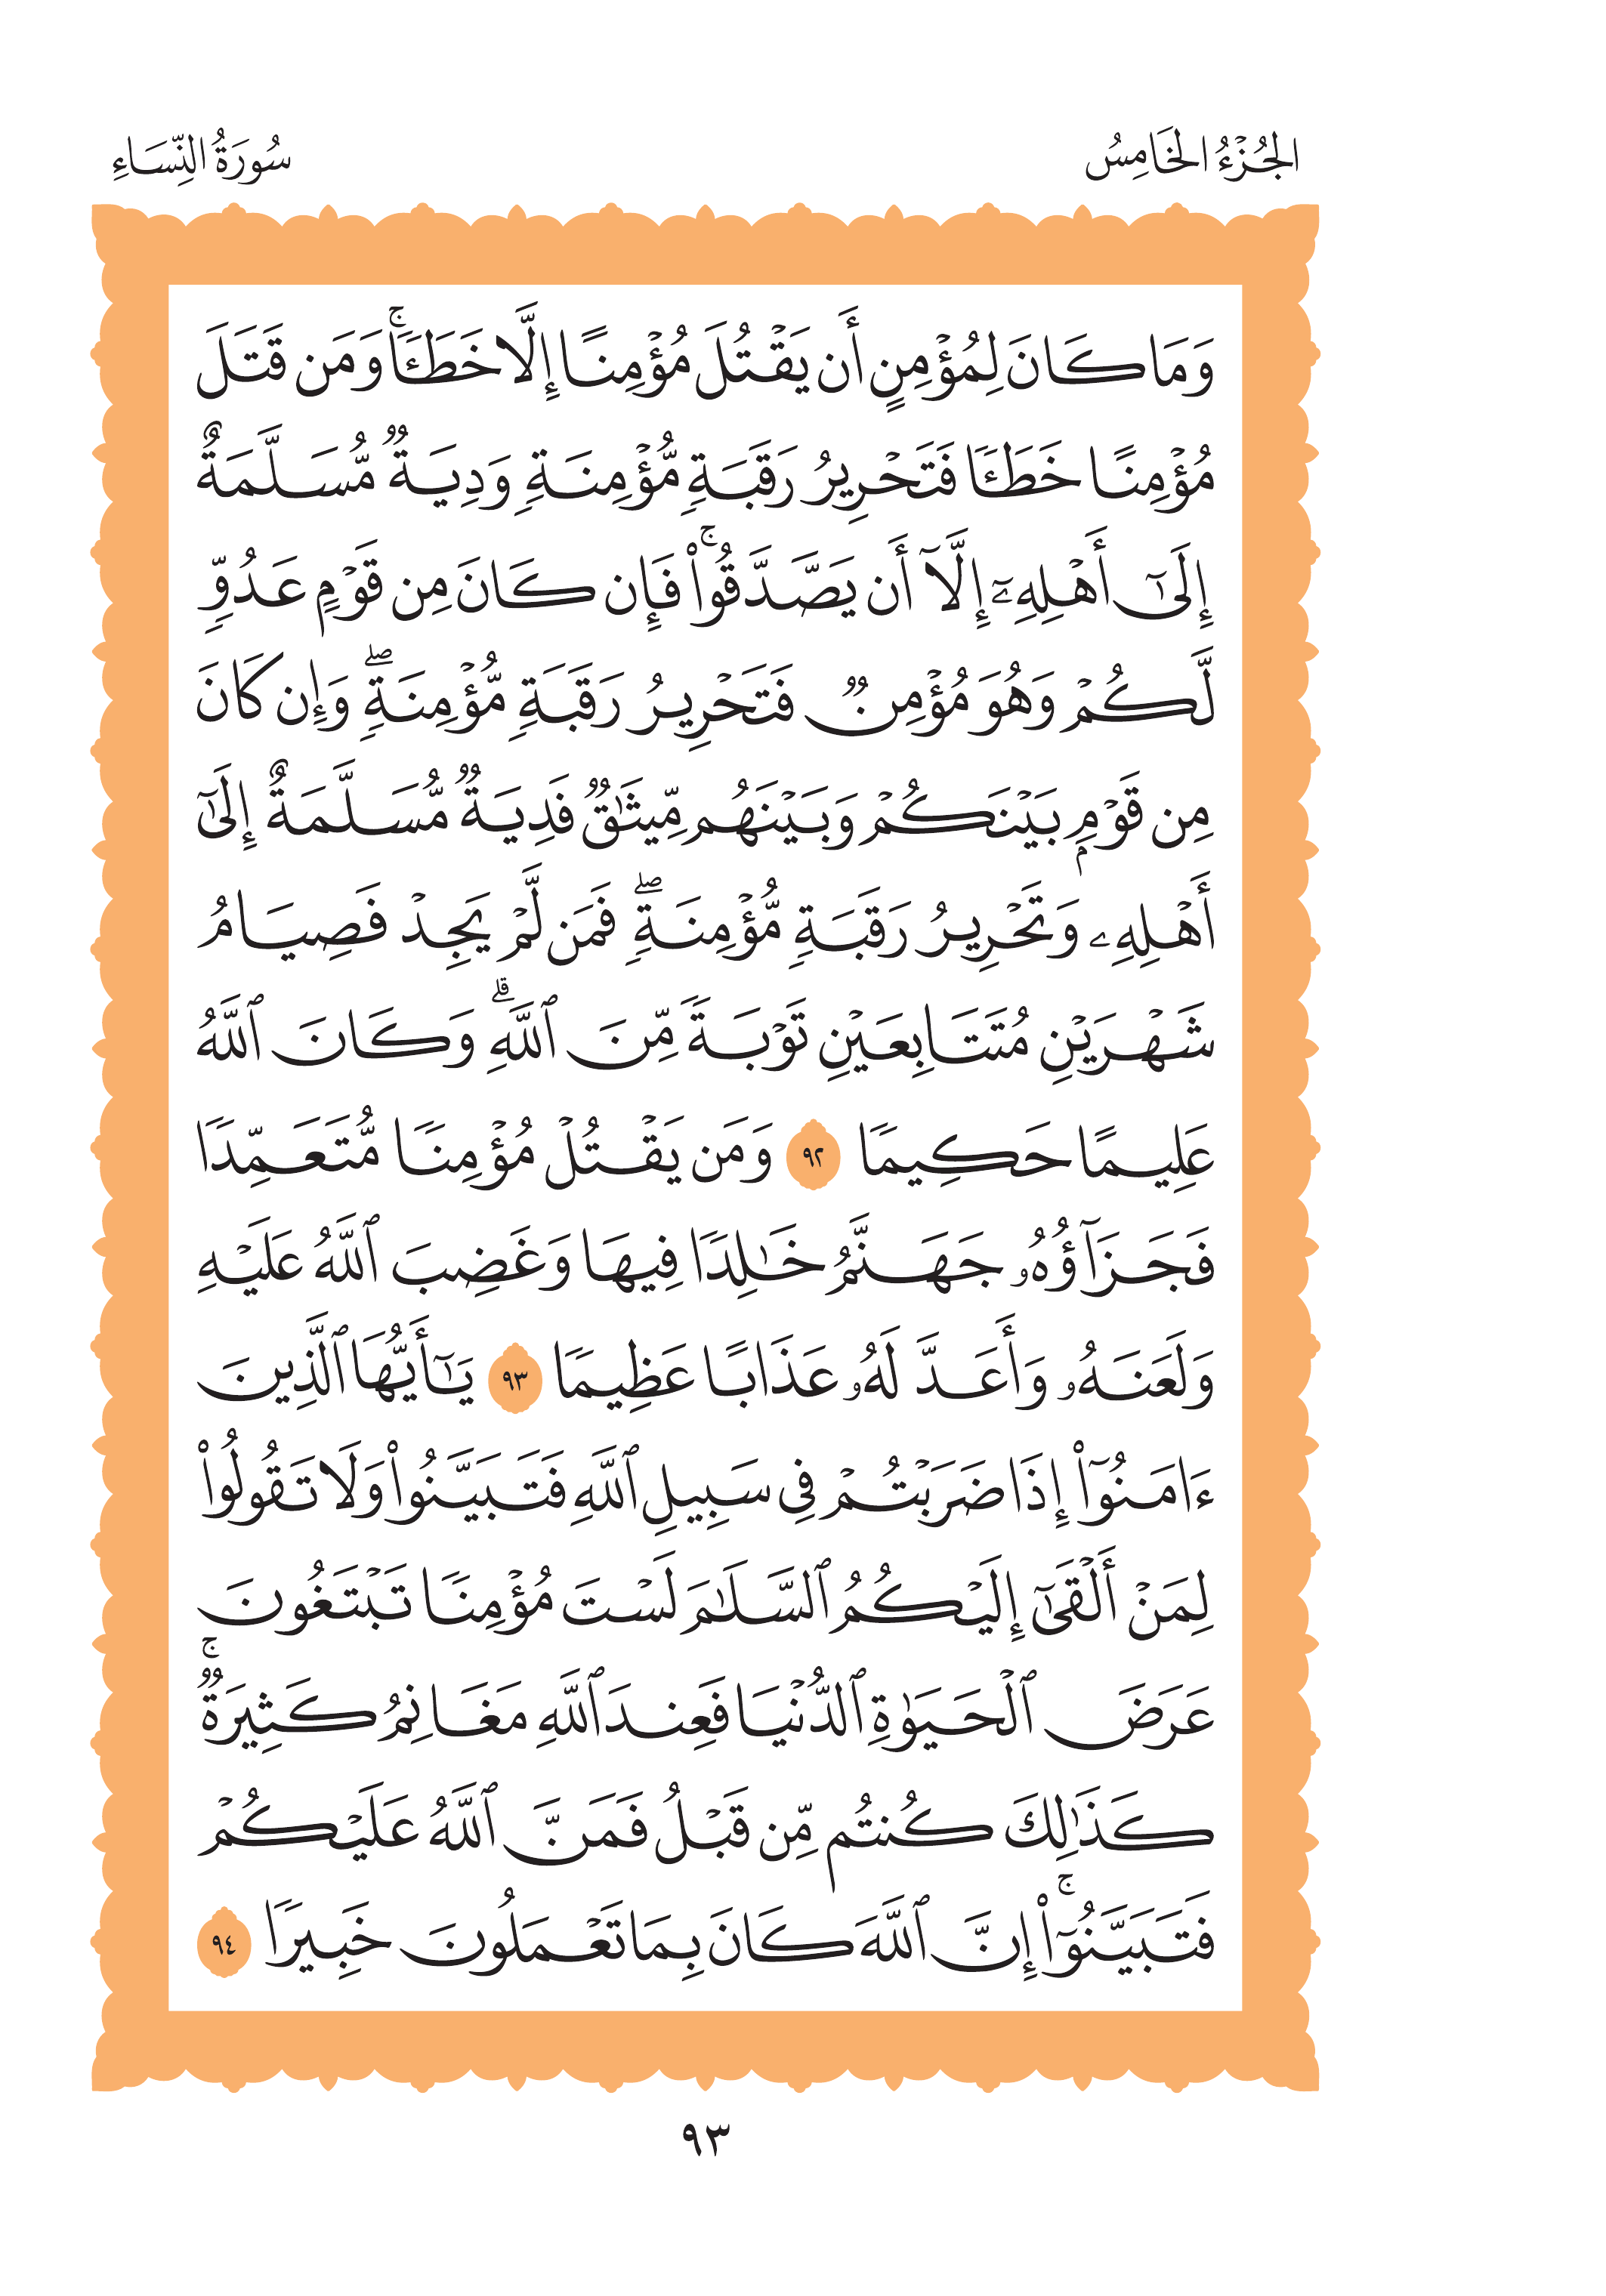 الجُزْءُ الخَامِسُ
سُورَةُ النِّسَاءِ
وَمَا كَانَ لِمُؤْمِنٍ أَن يَقْتُلَ مُؤْمِنًا إِلَّا خَطَـًٔا ۚ وَمَن قَتَلَ
مُؤْمِنًا خَطَـًٔا فَتَحْرِيرُ رَقَبَةٍ مُّؤْمِنَةٍ وَدِيَةٌ مُّسَلَّمَةٌ
إِلَىٰٓ أَهْلِهِۦٓ إِلَّآ أَن يَصَّدَّقُوا۟ ۚ فَإِن كَانَ مِن قَوْمٍ عَدُوٍّ
لَّكُمْ وَهُوَ مُؤْمِنٌ فَتَحْرِيرُ رَقَبَةٍ مُّؤْمِنَةٍ ۖ وَإِن كَانَ
مِن قَوْمٍۭ بَيْنَكُمْ وَبَيْنَهُم مِّيثَـٰقٌ فَدِيَةٌ مُّسَلَّمَةٌ إِلَىٰٓ
أَهْلِهِۦ وَتَحْرِيرُ رَقَبَةٍ مُّؤْمِنَةٍ ۖ فَمَن لَّمْ يَجِدْ فَصِيَامُ
شَهْرَيْنِ مُتَتَابِعَيْنِ تَوْبَةً مِّنَ ٱللَّهِ ۗ وَكَانَ ٱللَّهُ
عَلِيمًا حَكِيمًا ٩٢ وَمَن يَقْتُلْ مُؤْمِنًا مُّتَعَمِّدًا
فَجَزَآؤُهُۥ جَهَنَّمُ خَـٰلِدًا فِيهَا وَغَضِبَ ٱللَّهُ عَلَيْهِ
وَلَعَنَهُۥ وَأَعَدَّ لَهُۥ عَذَابًا عَظِيمًا ٩٣ يَـٰٓأَيُّهَا ٱلَّذِينَ
ءَامَنُوٓا۟ إِذَا ضَرَبْتُمْ فِى سَبِيلِ ٱللَّهِ فَتَبَيَّنُوا۟ وَلَا تَقُولُوا۟
لِمَنْ أَلْقَىٰٓ إِلَيْكُمُ ٱلسَّلَـٰمَ لَسْتَ مُؤْمِنًا تَبْتَغُونَ
عَرَضَ ٱلْحَيَوٰةِ ٱلدُّنْيَا فَعِندَ ٱللَّهِ مَغَانِمُ كَثِيرَةٌ ۚ
كَذَٰلِكَ كُنتُم مِّن قَبْلُ فَمَنَّ ٱللَّهُ عَلَيْكُمْ
فَتَبَيَّنُوٓا۟ ۚ إِنَّ ٱللَّهَ كَانَ بِمَا تَعْمَلُونَ خَبِيرًا ٩٤
٩٣